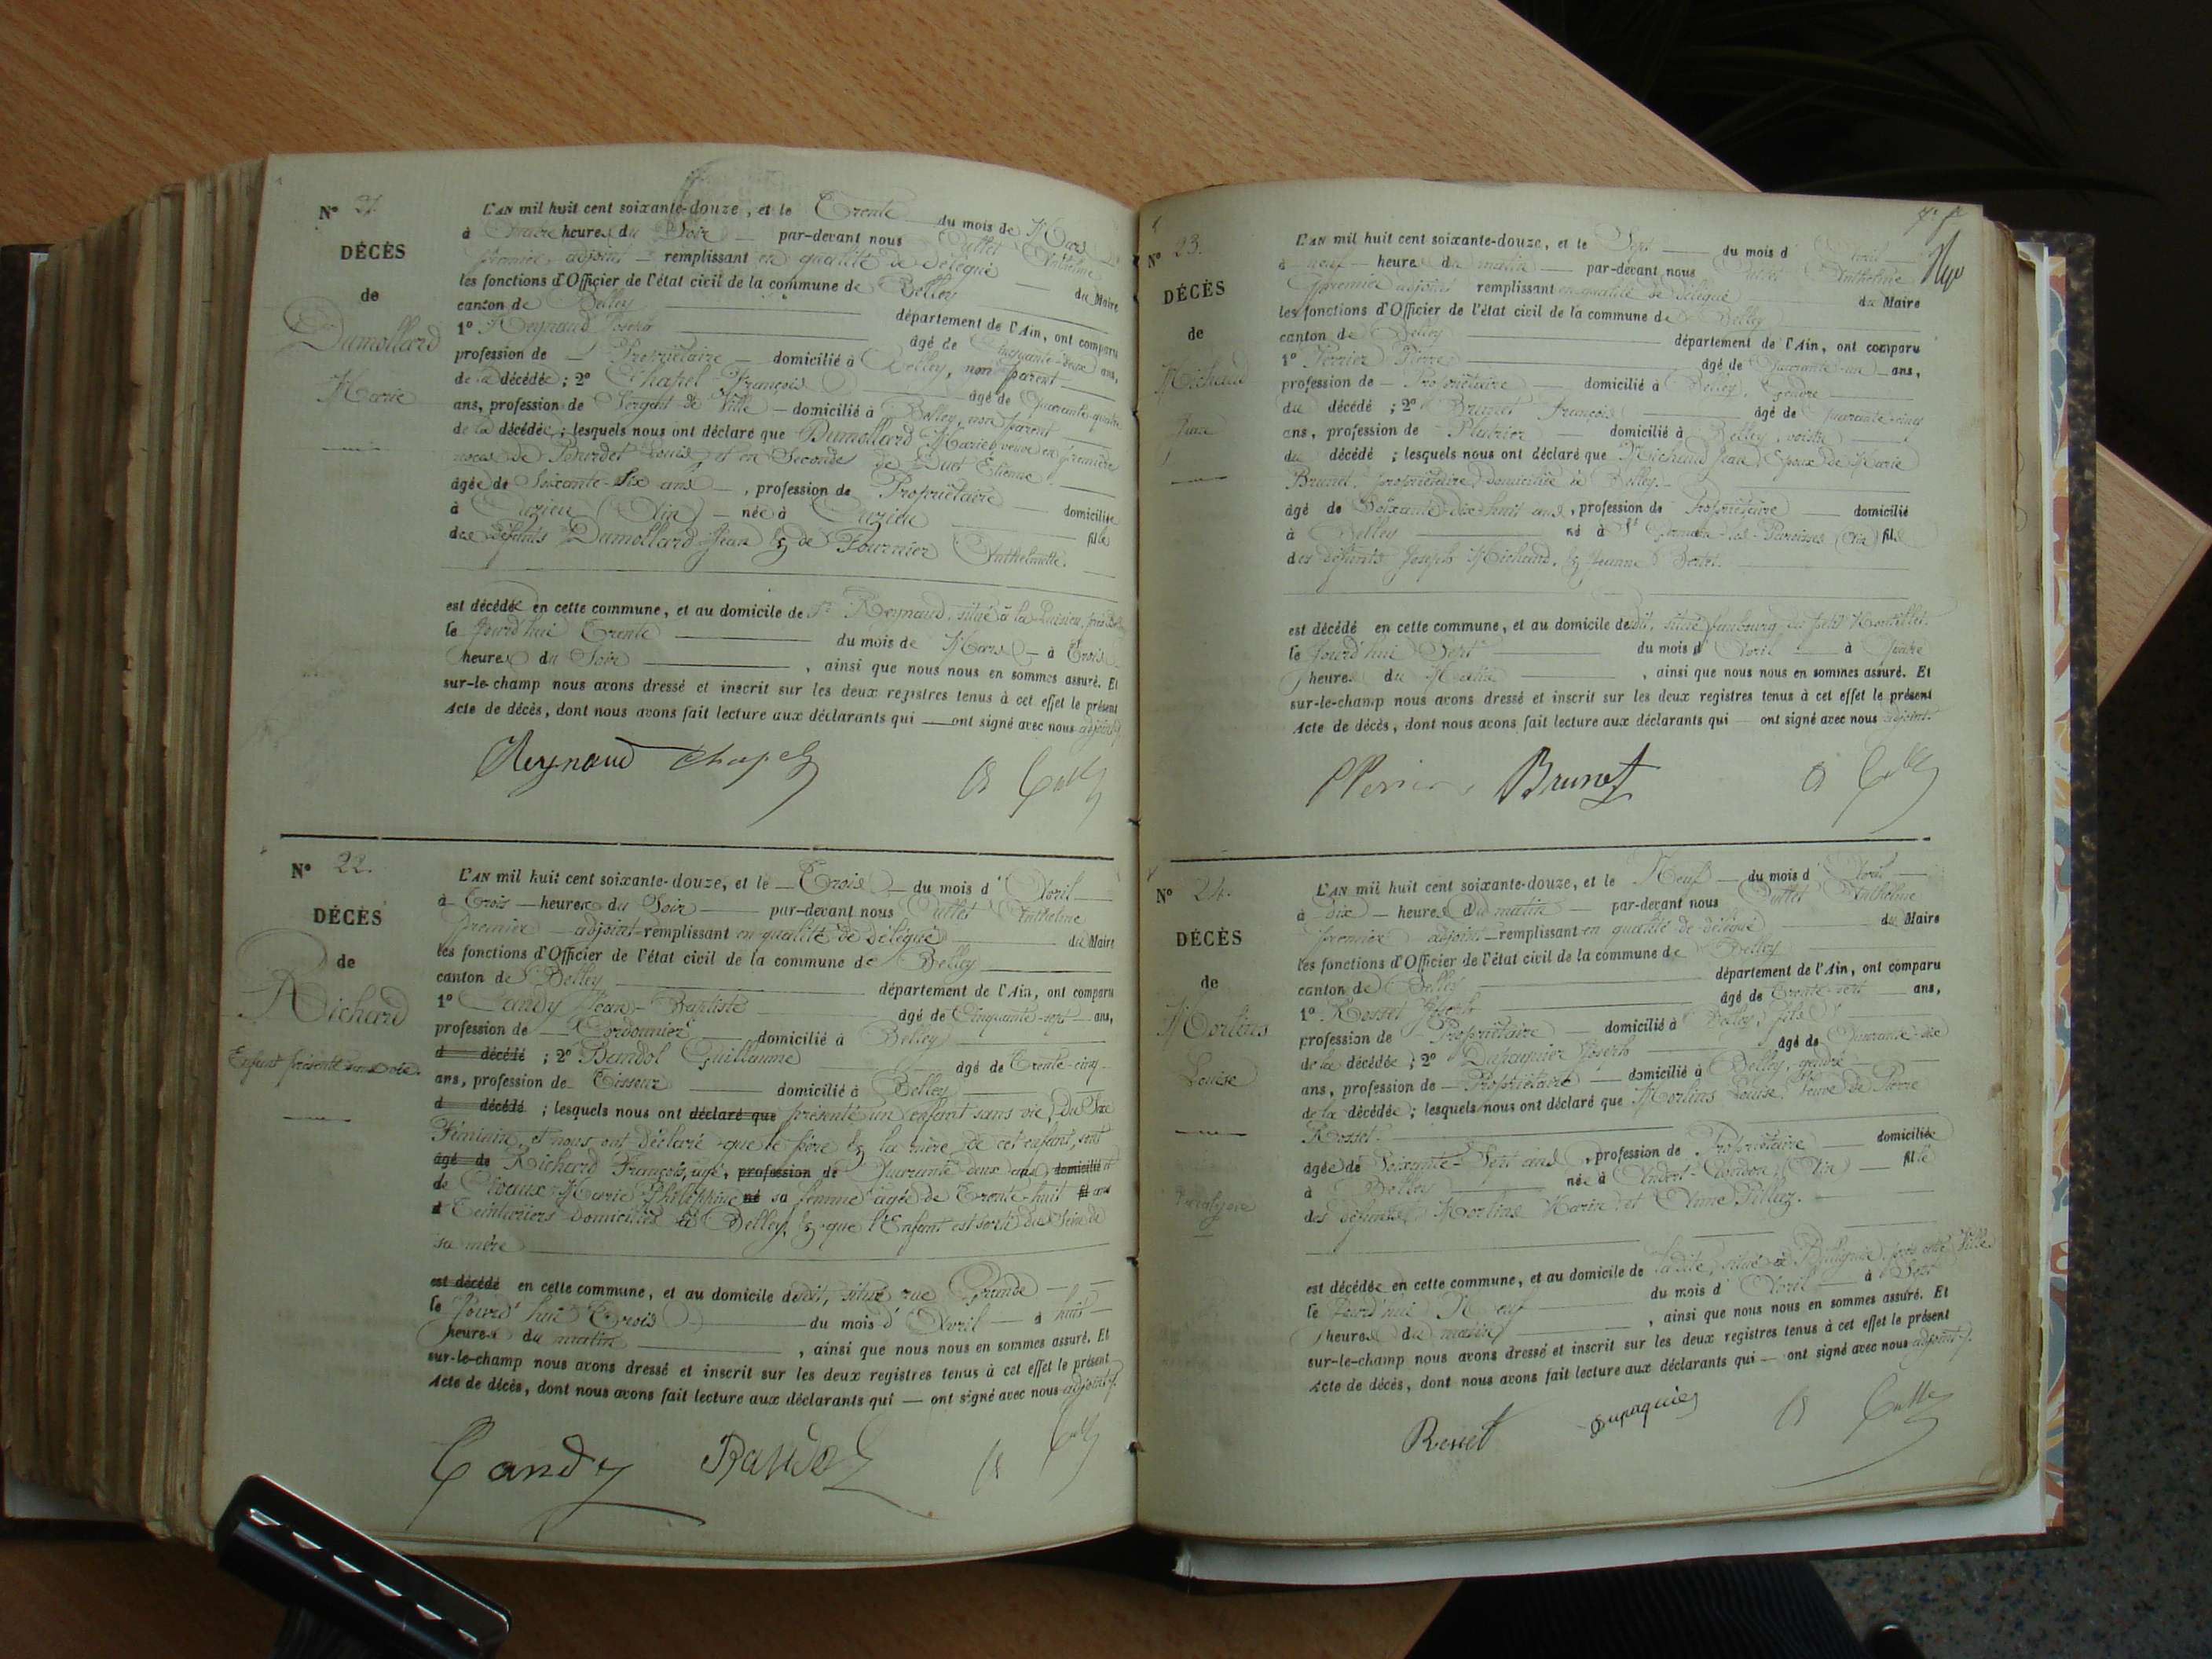 N° 21
DÉCÈS
de
Dumollard
Marie
L'AN mil huit cent soixante-douze, et le Trente du mois de Mars
à Quatre heures du Soir par-devant nous Cullet Anthelme
premier adjoint remplissant en qualité de délégué du Maire
les fonctions d'Officier de l'état civil de la commune de Belley
canton de Belley département de l'Ain, ont comparu
1° Reynaud Joseph âgé de Cinquante-deux ans,
profession de Propriétaire domicilié à Belley, non parent
de la décédée ; 2° Chapel François âgé de Quarante-quatre
ans, profession de Sergent de Ville domicilié à Belley, non parent
de la décédée ; lesquels nous ont déclaré que Dumollard Marie, veuve en première
noces de Louis, et en Seconde de Etienne
âgée de Soixante-Six ans, profession de Propriétaire domiciliée
à Cuzieu (Ain) née à Cuzieu fille
des défunts Dumollard Jean & de Fournier Anthelmette.
est décédée en cette commune, et au domicile de Sr Reynaud, situé à la près Belley
le Jourd'hui Trente du mois de Mars à Trois
heures du Soir, ainsi que nous nous en sommes assuré. Et
sur-le-champ nous avons dressé et inscrit sur les deux registres tenus à cet effet le présent
Acte de décès, dont nous avons fait lecture aux déclarants qui ont signé avec nous adjoint.
Reynaud Chapel A Cullet
N° 22.
DÉCÈS
de
Richard
Enfant présenté sans vie.
L'AN mil huit cent soixante-douze, et le Trois du mois d'Avril
à Trois heures du Soir par-devant nous Cullet Anthelme
premier adjoint remplissant en qualité de délégué du Maire
les fonctions d'Officier de l'état civil de la commune de Belley
canton de Belley département de l'Ain, ont comparu
1° Candy Jean-Baptiste âgé de Cinquante-sept ans,
profession de Cordonnier domicilié à Belley
d décédé ; 2° Guillaume âgé de Trente-cinq
ans, profession de Tisseur domicilié à Belley
d décédé ; lesquels nous ont déclaré que présenté un enfant sans vie, du Sexe
Féminin, et nous ont déclaré que le père & la mère de cet enfant, sont
âgé de Richard François, âgé, profession de Quarante deux ans, domicilié et
de Marie Philippine né sa femme âgée de Trente-huit fil ans
d Teinturiers domiciliés à Belley, & que l'Enfant est sorti du Sein de
sa mère
est décédé en cette commune, et au domicile dudit, situé rue Grande
le Jourd'hui Trois du mois d'Avril à huit
heures du matin, ainsi que nous nous en sommes assuré. Et
sur-le-champ nous avons dressé et inscrit sur les deux registres tenus à cet effet le présent
Acte de décès, dont nous avons fait lecture aux déclarants qui ont signé avec nous adjoint.
Candy A Cullet
N° 23.
DÉCÈS
de
Michaud
Jean
L'AN mil huit cent soixante-douze, et le Sept du mois d'Avril
à neuf heures du matin par-devant nous Cullet Anthelme
premier adjoint remplissant en qualité de délégué du Maire
les fonctions d'Officier de l'état civil de la commune de Belley
canton de Belley département de l'Ain, ont comparu
1° Perrier Pierre âgé de Quarante-un ans,
profession de Propriétaire domicilié à Belley, Gendre
du décédé ; 2° Brunet François âgé de Quarante-cinq
ans, profession de Plâtrier domicilié à Belley, voisin
du décédé ; lesquels nous ont déclaré que Michaud Jean, Époux de Marie
Brunet, propriétaire, domiciliée à Belley.
âgé de Soixante-dix-huit ans, profession de Propriétaire domicilié
à Belley né à St Germain-les-Paroisses (Ain) fils
des défunts Joseph Michaud, & Jeanne
est décédé en cette commune, et au domicile dudit, situé faubourg du
le Jourd'hui Sept du mois d'Avril à quatre
heures du Matin, ainsi que nous nous en sommes assuré. Et
sur-le-champ nous avons dressé et inscrit sur les deux registres tenus à cet effet le présent
Acte de décès, dont nous avons fait lecture aux déclarants qui ont signé avec nous adjoint.
PPerrier Brunet A Cullet
N° 24.
DÉCÈS
de
Morlins
Louise
L'AN mil huit cent soixante-douze, et le Neuf du mois d'Avril
à dix heures du matin par-devant nous Cullet Anthelme
premier adjoint remplissant en qualité de délégué du Maire
les fonctions d'Officier de l'état civil de la commune de Belley
canton de Belley département de l'Ain, ont comparu
1° Rosset Joseph âgé de Trente-sept ans,
profession de Propriétaire domicilié à Belley, fils
de la décédée ; 2° Dupasquier Joseph âgé de Quarante-six
ans, profession de Propriétaire domicilié à Belley, gendre
de la décédée ; lesquels nous ont déclaré que Morlins Louise, Veuve de Pierre
Rosset.
âgée de Soixante-Sept ans, profession de Propriétaire domiciliée
à Belley née à Andert-Condon (Ain) fille
des défunts Morlins Marin et Anne
est décédée en cette commune, et au domicile de ladite, situé à près cette Ville.
le Jourd'hui Neuf du mois d'Avril à Sept
heures du matin, ainsi que nous nous en sommes assuré. Et
sur-le-champ nous avons dressé et inscrit sur les deux registres tenus à cet effet le présent
Acte de décès, dont nous avons fait lecture aux déclarants qui ont signé avec nous adjoint.
Rosset Dupaquier A Cullet